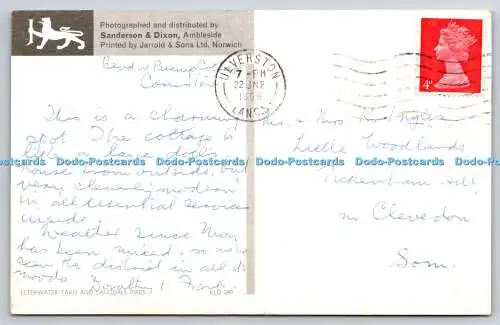 Photographed and distributed by
Sanderson & Dixon, Ambleside
Printed by Jarrold & Sons Ltd, Norwich
Coniston
This is a charming
spot. The cottage is
like a large doll's
house from outside, but
very cleverly modern
in all essential services
inside.
Weather since Mon.
has been mixed, so we've
seen the district in all its
moods. Dorothy & Frank.
ELTERWATER TARN AND LANGDALE PIKES KLD 240
ULVERSTON
7 - PM
22 JNE
LANCS
4D
Mr. & Mrs
Little Woodlands
Tickenham Hill
nr Clevedon
Som.
D-Z-Postcards D-Z-Postcards D-Z-Postcards D-Z-Postcards